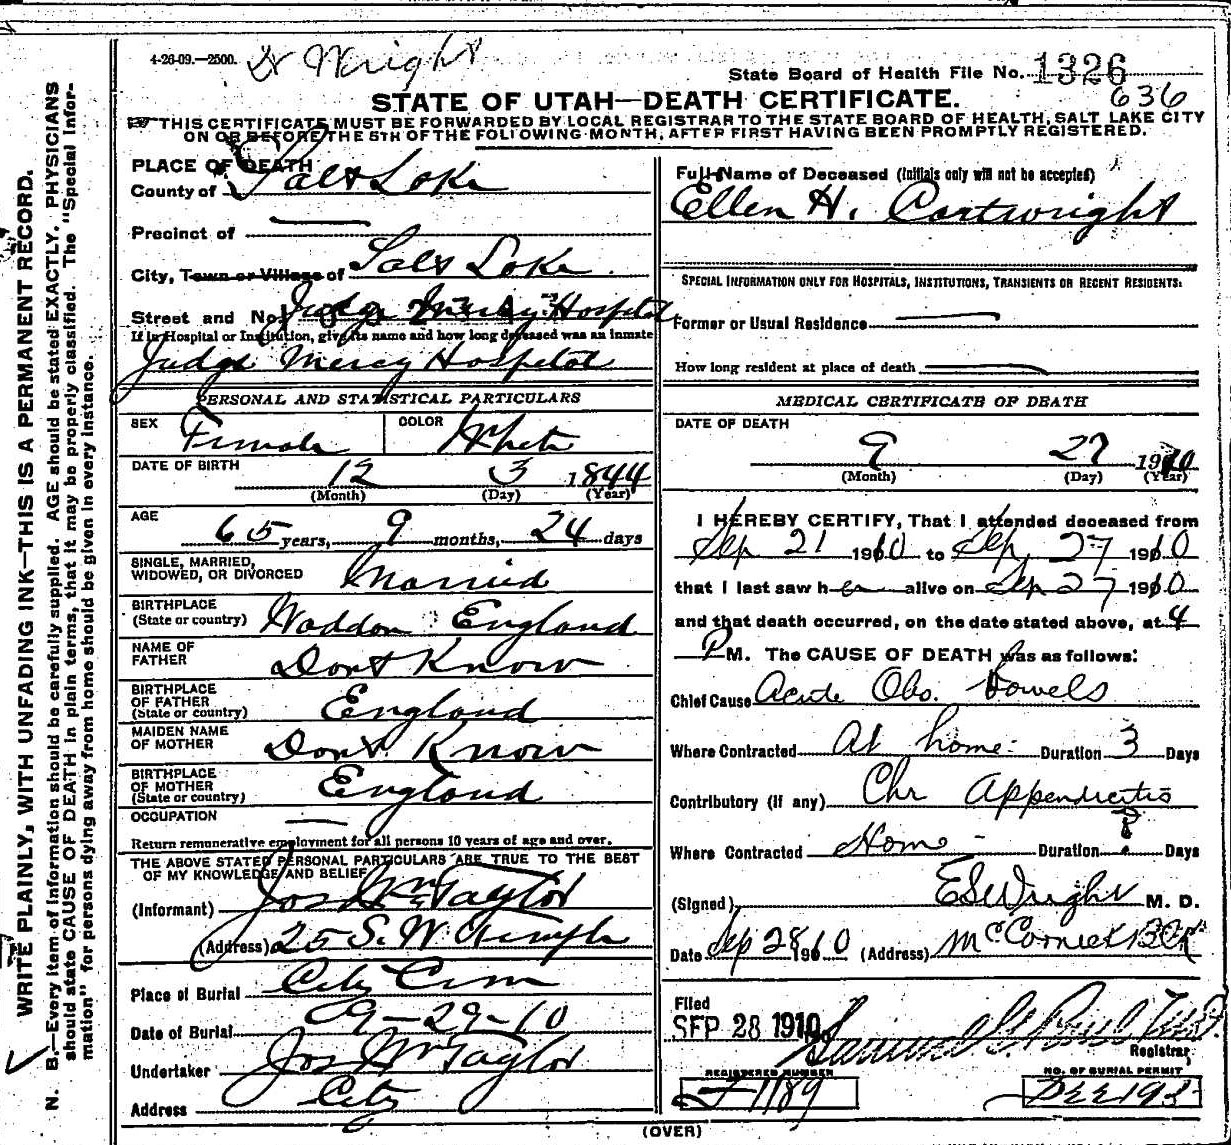 4-26-09.—2500. Dr Wright
State Board of Health File No. 1326
636
STATE OF UTAH—DEATH CERTIFICATE.
THIS CERTIFICATE MUST BE FORWARDED BY LOCAL REGISTRAR TO THE STATE BOARD OF HEALTH, SALT LAKE CITY
ON OR BEFORE THE 5TH OF THE FOLLOWING MONTH, AFTER FIRST HAVING BEEN PROMPTLY REGISTERED.
WRITE PLAINLY, WITH UNFADING INK—THIS IS A PERMANENT RECORD.
N. B.—Every item of information should be carefully supplied. AGE should be stated EXACTLY. PHYSICIANS
should state CAUSE OF DEATH in plain terms, that it may be properly classified. The "Special Infor-
mation" for persons dying away from home should be given in every instance.
PLACE OF DEATH
County of Salt Lake
Precinct of
City, Town or Village of Salt Lake
Street and No. Judge Mercy Hospital
If in Hospital or Institution, give its name and how long deceased was an inmate
Judge Mercy Hospital
PERSONAL AND STATISTICAL PARTICULARS
SEX Female COLOR White
DATE OF BIRTH 12 3 1844
(Month) (Day) (Year)
AGE
65 years, 9 months, 24 days
SINGLE, MARRIED,
WIDOWED, OR DIVORCED Married
BIRTHPLACE
(State or country) Waddon England
NAME OF
FATHER Dont Know
BIRTHPLACE
OF FATHER
(State or country) England
MAIDEN NAME
OF MOTHER Dont Know
BIRTHPLACE
OF MOTHER
(State or country) England
OCCUPATION
Return remunerative employment for all persons 10 years of age and over.
THE ABOVE STATED PERSONAL PARTICULARS ARE TRUE TO THE BEST
OF MY KNOWLEDGE AND BELIEF
(Informant) Jos Wm Taylor
(Address) 25 S. W Temple
Place of Burial City Cem
Date of Burial 09-29-10
Undertaker Jos Wm Taylor
Address City
Full Name of Deceased (Initials only will not be accepted)
Ellen H. Cartwright
SPECIAL INFORMATION ONLY FOR HOSPITALS, INSTITUTIONS, TRANSIENTS OR RECENT RESIDENTS:
Former or Usual Residence
How long resident at place of death
MEDICAL CERTIFICATE OF DEATH
DATE OF DEATH
9 27 1910
(Month) (Day) (Year)
I HEREBY CERTIFY, That I attended deceased from
Sep 21 1910 to Sep 27 1910
that I last saw her alive on Sep 27 1910
and that death occurred, on the date stated above, at 4
P M. The CAUSE OF DEATH was as follows:
Chief Cause Acute Obs. Bowels
Where Contracted At home Duration 3 Days
Contributory (if any) Chr Appendicitis
Where Contracted Home Duration ? Days
(Signed) E S Wright M. D.
Date Sep 28 1910 (Address) McCornick Blk
Filed
SEP 28 1910
Registrar
REGISTERED NUMBER NO. OF BURIAL PERMIT
1189
(OVER)